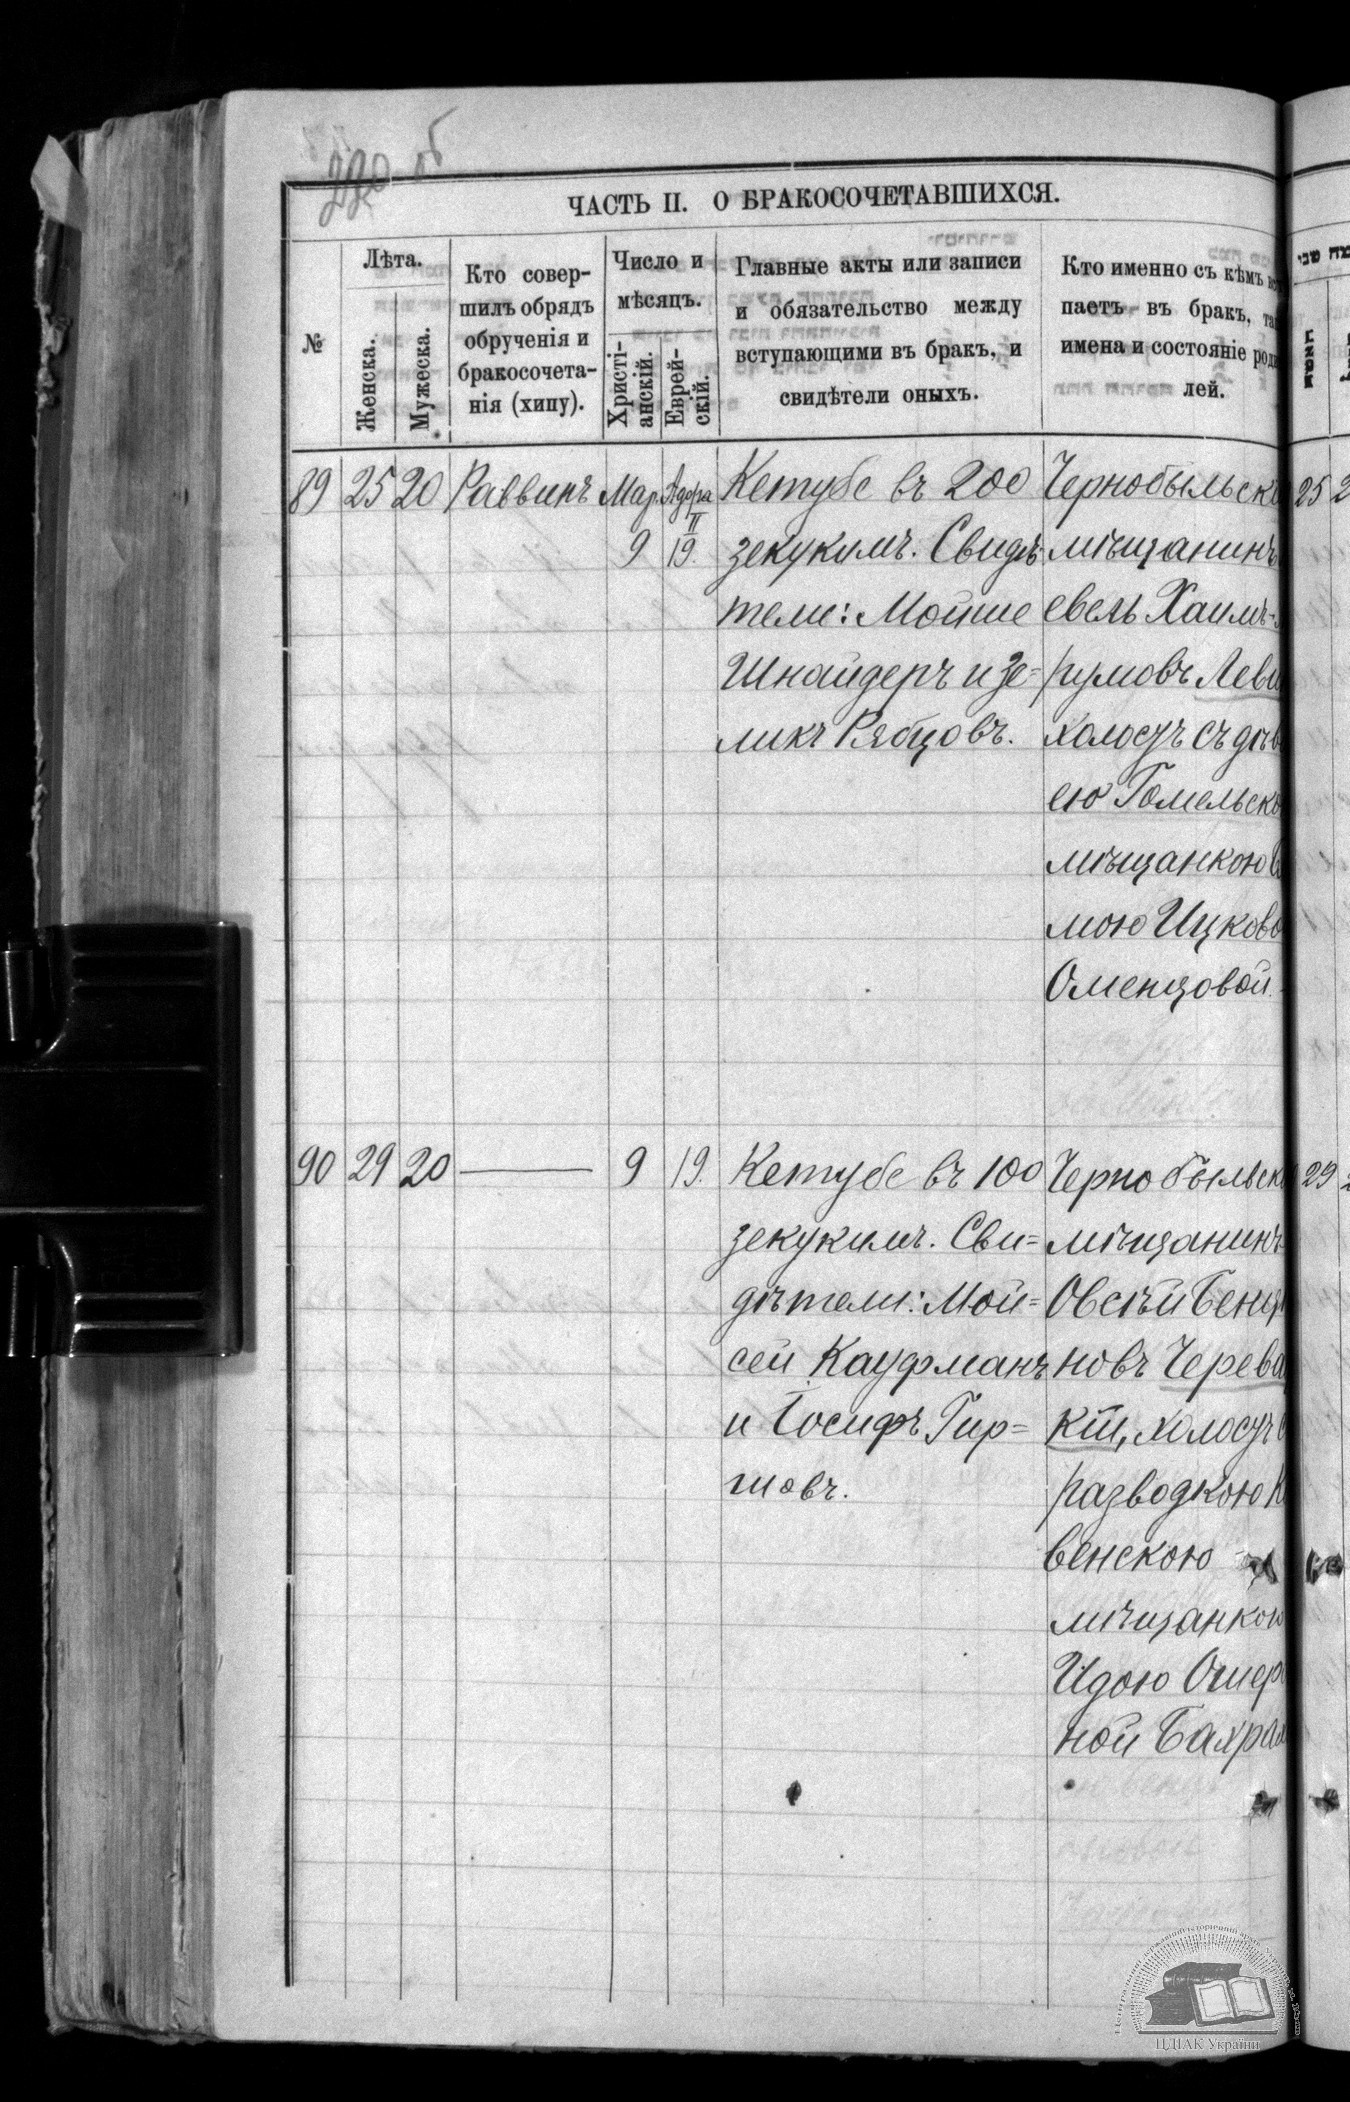 220 об
ЧАСТЬ II. О БРАКОСОЧЕТАВШИХСЯ.
№
Лѣта.
Женска.
Мужеска.
Кто совер-
шилъ обрядъ
обрученія и
бракосочета-
нія (хипу).
Число и
мѣсяцъ.
Христі-
анскій.
Еврей-
скій.
Главные акты или записи
и обязательство между
вступающими въ бракъ, и
свидѣтели оныхъ.
Кто именно съ кѣмъ вс
паетъ въ бракъ, та
имена и состояніе роди
лей.
89 25 20 Раввинъ Мар. Адора
II
9 19.
Кетубе въ 200
зекукимъ. Свидѣ-
тели: Мойше
Шнайдеръ и Зе=
ликъ Рябцовъ.
Чернобыльск
мѣщанинъ
евель Хаимъ-
румовъ Леви
холостъ съ дѣв
ею Гомельско
мѣщанкою
мою Ицково
Оменцовой
25 2
90 29 20 — 9 19.
Кетубе въ 100
зекукимъ. Сви=
дѣтели: Мой=
сей Кауфманъ
и Іосифъ Гир=
шовъ.
Чернобыльск
мѣщанинъ
Овсѣй Бенц
новъ Черева
кій, холостъ с
разводкою К
венскою
мѣщанкою
Идою Ошер
ной Бахрах
29 2
ЦДІАК України